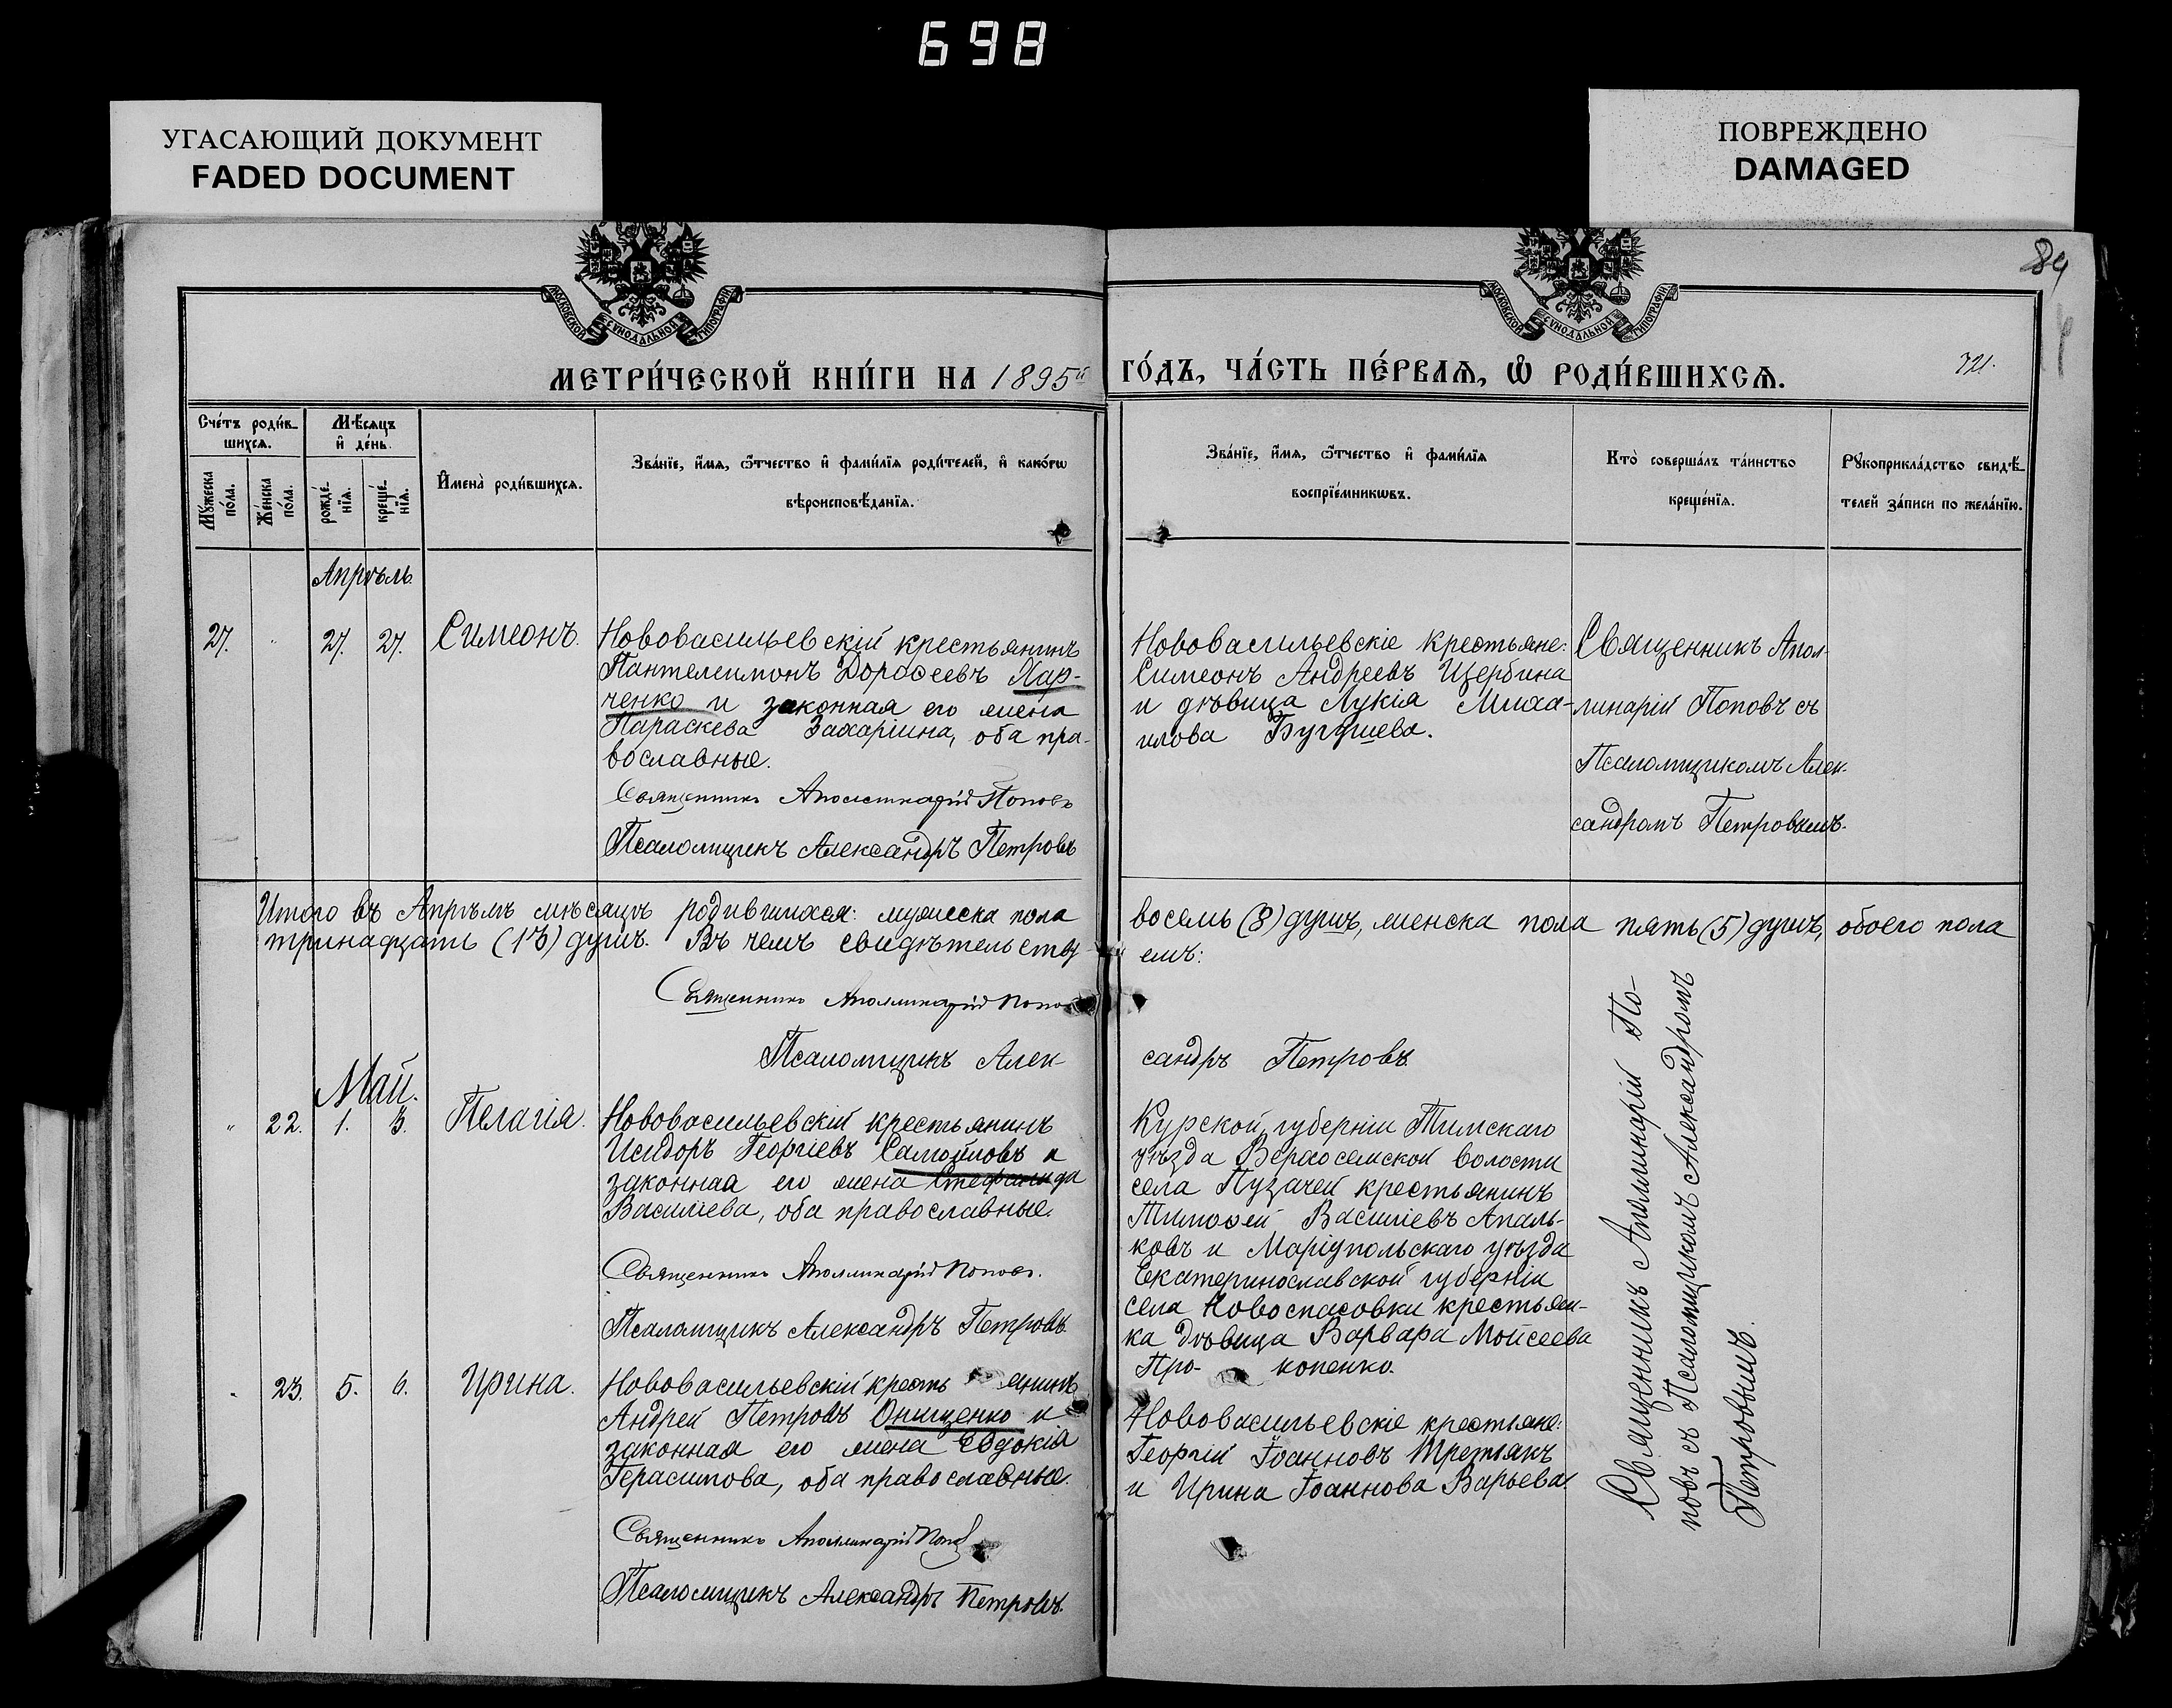 698
УГАСАЮЩИЙ ДОКУМЕНТ
FADED DOCUMENT
ПОВРЕЖДЕНО
DAMAGED
МОСКОВСКОЙ СѴНОДАЛЬНОЙ ТИПОГРАФІИ
МОСКОВСКОЙ СѴНОДАЛЬНОЙ ТИПОГРАФІИ
84
МЕТРИ́ЧЕСКОЙ КНИ́ГИ НА 1895й ГО́ДЪ, ЧА́СТЬ ПЕ́РВАѦ, Ѡ҆ РОДИ́ВШИХСѦ.
721.
Сче́тъ роди́в-
шихсѧ.
Мꙋ́жеска
по́ла.
Же́нска
по́ла.
Мѣ́сѧцъ
и҆ де́нь.
рожде́-
нїѧ.
креще́-
нїѧ.
И҆мена̀ роди́вшихсѧ.
Зва́нїе, и҆́мѧ, ѻ҆́тчество и҆ фами́лїѧ роди́телей, и҆ како́гѡ
вѣроисповѣ́данїѧ.
Зва́нїе, и҆́мѧ, ѻ҆́тчество и҆ фами́лїѧ
воспрїе́мникѡвъ.
Кто̀ соверша́лъ та́инство
креще́нїѧ.
Рꙋкоприкла́дство свидѣ́-
телей за́писи по жела́нїю.
Апрѣль.
27. " 27. 27. Симеонъ.
Нововасильевскій крестьянинъ
Пантелеимонъ Дороѳеевъ Хар-
ченко и законная его жена
Параскева Захаріина, оба пра-
вославные.
Священникъ Аполлинарій Поповъ
Псаломщикъ Александръ Петровъ
Нововасильевскіе крестьяне:
Симеонъ Андреевъ Щербина
и дѣвица Лукія Миха-
илова Бугушева.
Священникъ Апол-
линарій Поповъ съ
Псаломщикомъ Алек-
сандромъ Петровымъ.
Итого въ Апрѣлѣ мѣсяцѣ родившихся: мужеска пола восемь (8) душъ, женска пола пять (5) душъ, обоего пола
тринадцать (13) душъ. Въ чемъ свидѣтельству- емъ:
Священникъ Аполлинарій Попов
Псаломщикъ Алек- сандръ Петровъ.
Май.
" 22. 1. 3. Пелагія.
Нововасильевскій крестьянинъ
Исидоръ Георгіевъ Самойловъ и
законная его жена Стефанида
Василіева, оба православные.
Священникъ Аполлинарій Поповъ.
Псаломщикъ Александръ Петровъ.
Курской губерніи Тимскаго
уѣзда Верхосемской волости
села Пузачей крестьянинъ
Тимоѳей Василіевъ Апаль-
ковъ и Маріупольскаго уѣзда
Екатеринославской губерніи
села Новоспасовки крестьян-
ка дѣвица Варвара Мойсеева
Про- копенко.
" 23. 5. 6. Ирина.
Нововасильевскій кресть янинъ
Андрей Петровъ Онищенко и
законная его жена Евдокія
Герасимова, оба православные.
Священникъ Аполлинарій Попов
Псаломщикъ Александръ Петровъ.
Нововасильевскіе крестьяне:
Георгій Іоанновъ Третьякъ
и Ирина Іоаннова Варьева.
Священникъ Аполлинарій По-
повъ съ Псаломщикомъ Александромъ
Петровымъ.